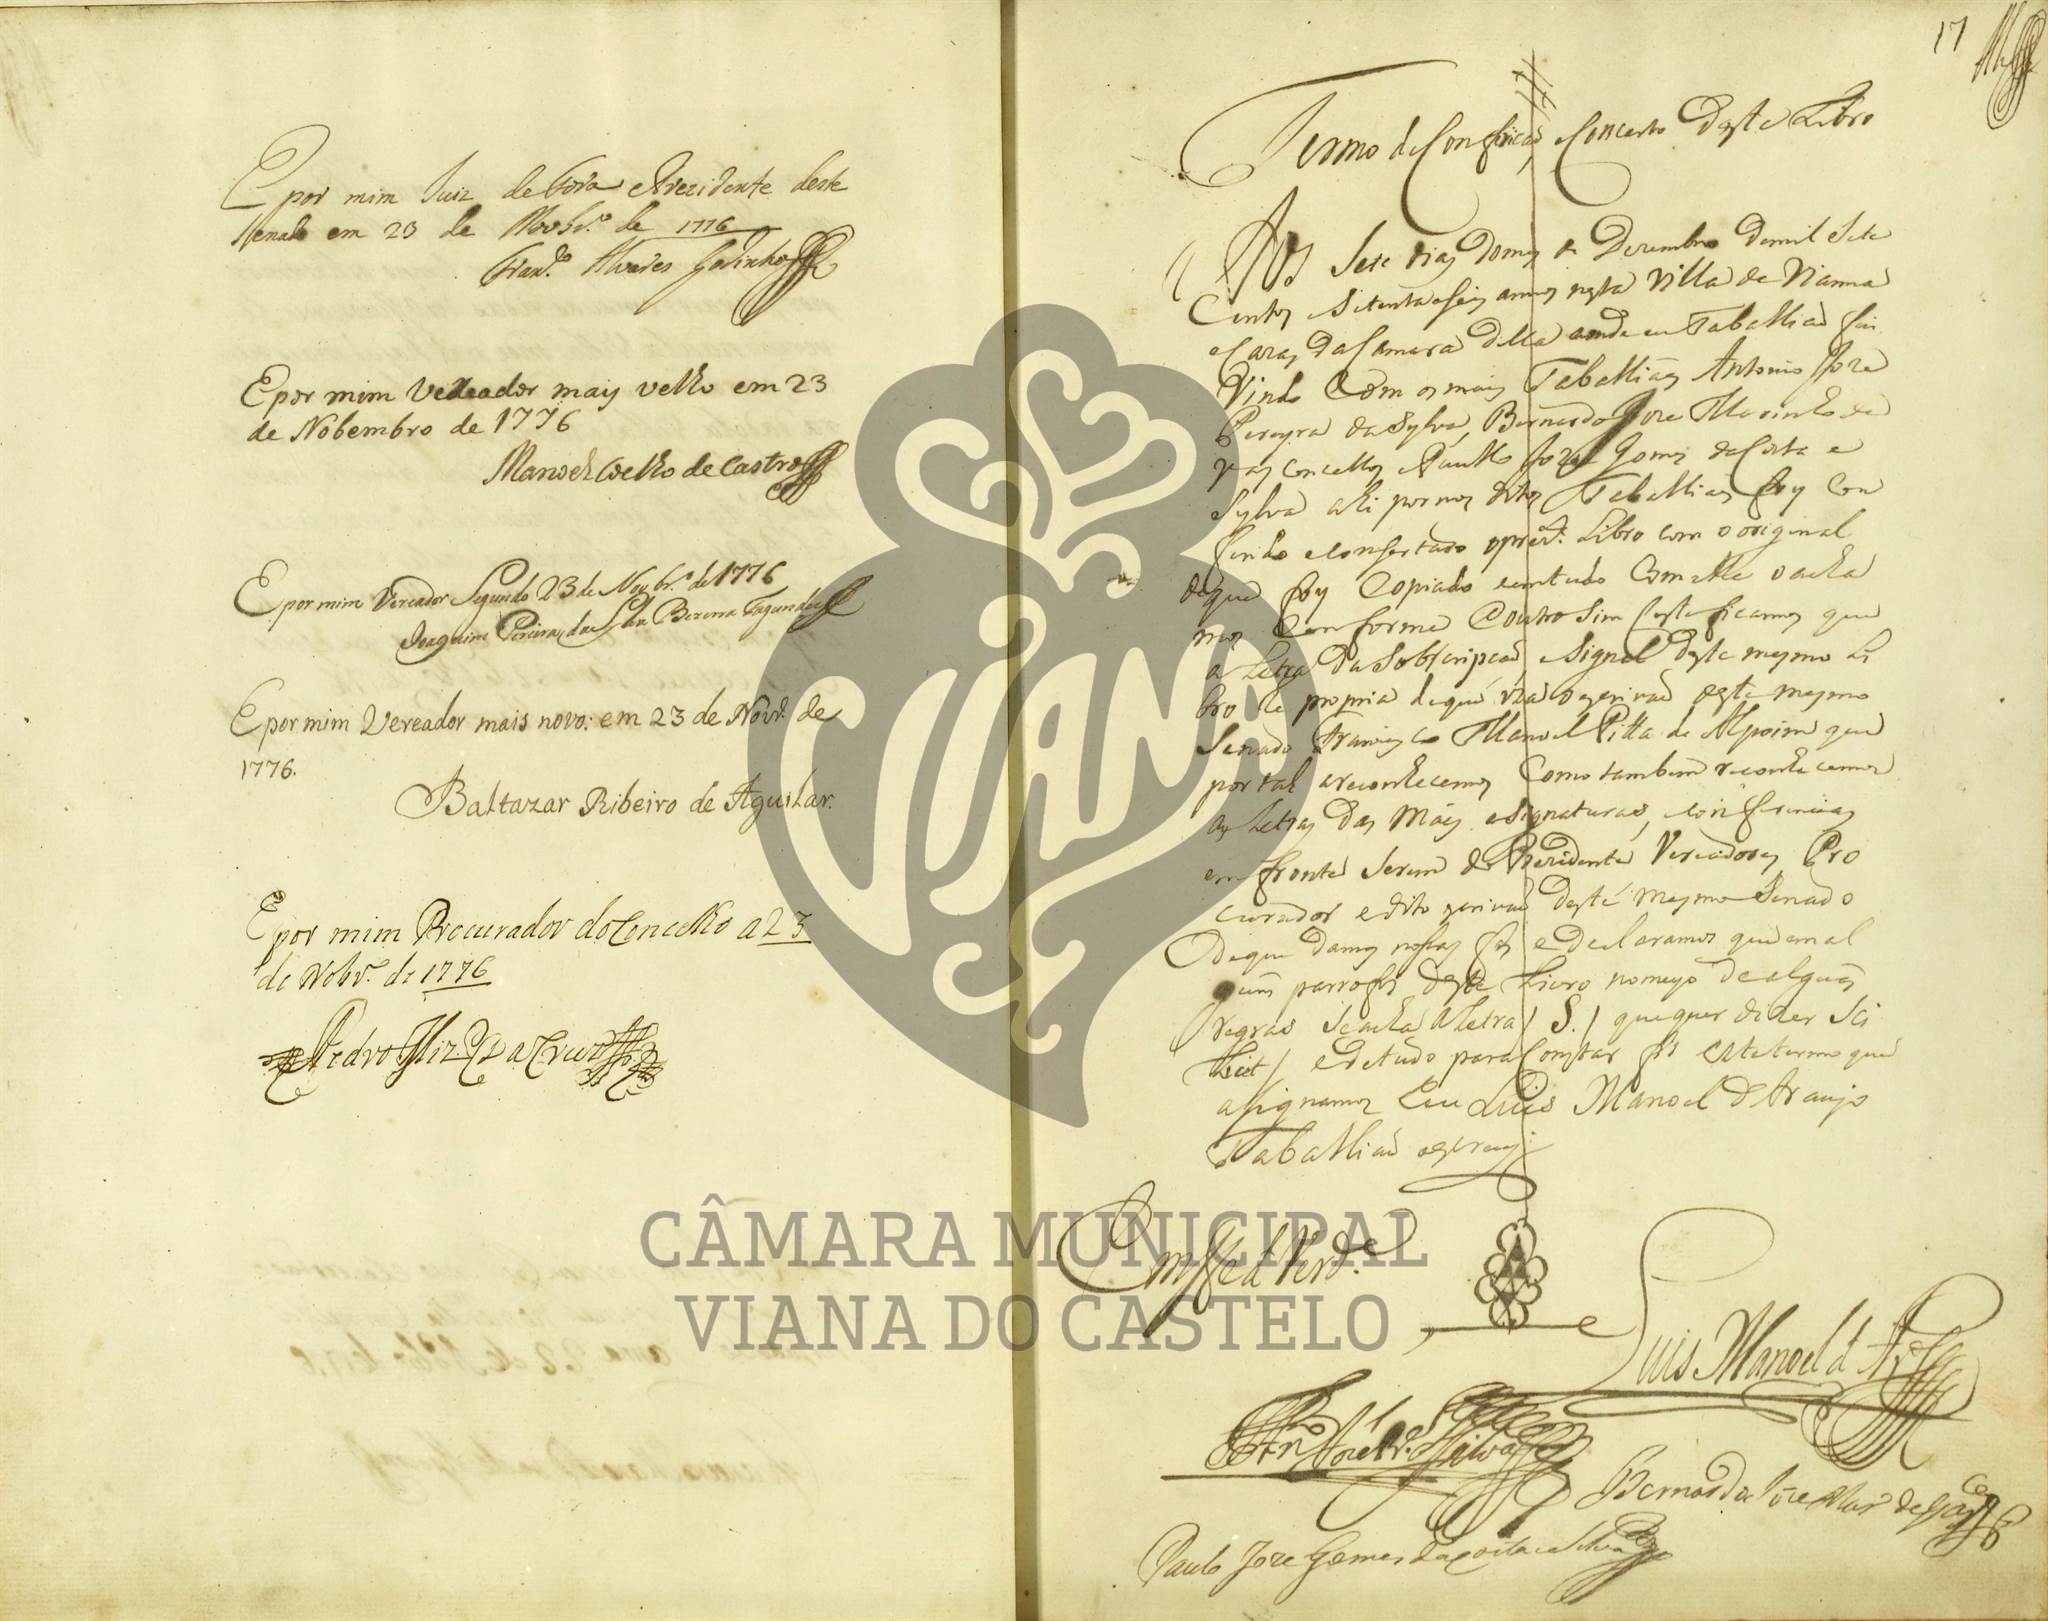 E por mim Juiz de Fora e Prezidente deste
Senado em 23 de Novbr.º de 1776
Fran.co Alvares Godinho
E por mim Vereador mais velho em 23
de Nobembro de 1776
Manoel Coelho de Castro
E por mim Vereador Segundo 23 de Novbr.º de 1776
Joaquim Pereira da Sª Bezerra Fagundes
E por mim Vereador mais novo: em 23 de Novr.º de
1776.
Baltazar Ribeiro de Aguilar.
E por mim Procurador do Concelho a 23
de Nobr.º de 1776
Pedro Miz. da Cruz
17
Termo de Conferiçaõ, e Concerto deste Libro
Aos Sete dias do mes de Dezembro de mil Sete
Centos Setenta e seis annos nesta Villa de Vianna
e Cazas da Camara della aonde eu Taballiaõ fui
Vindo Com os mais Taballiaes Antonio Joze
Pereyra da Sylva, Bernardo Joze Marinho de
Vasconcellos e Paullo Joze Gomes da Costa e
Sylva ahi por nos ditos Taballiaes foy Con
ferido e Consertado o prez.te Libro com o original
de que foy Copiado e em tudo Com elle o acha
mos Conforme E outro Sim Certeficamos que
a Letra da Sobscripçaõ e Signal deste mesmo Li
bro he propria de que uza o escrivaõ deste mesmo
Senado Francisco Manoel Pitta de Alpoim que
por tal a reconhecemos Como tambem reconhecemos
as Letras das Mais asignaturas, e conferencias
em fronte Serem do Prezidente Vereadores Pro
curador e dito escrivaõ deste mesmo Senado
De que damos nossas fes e declaramos que em al
guns parrofos deste Livro no meyo de alguas
Regras Se acha a Letra / S. / que quer dizer Sci
Licet / e de tudo para Constar fis este termo que
asignamos Eu Luis Manoel de Araujo
Taballiaõ o escrevy
Em ffe de Verd.e
Luis Manoel de Arº
Antº Joze Prª Silva
Bernardo Joze Marº de Vascos
Paulo Joze Gomes da Costa e Silva
VIANA
CÂMARA MUNICIPAL
VIANA DO CASTELO